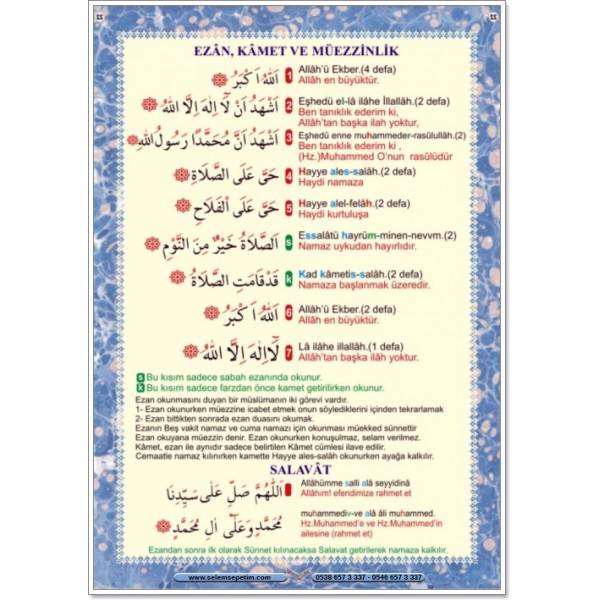 EZÂN, KÂMET VE MÜEZZİNLİK
اَللّٰهُ اَكْبَرُ 1 Allâh'ü Ekber.(4 defa)
Allâh en büyüktür.
اَشْهَدُ اَنْ لَٓا اِلٰهَ اِلَّا اللّٰهُ 2 Eşhedü el-lâ ilâhe İllallâh.(2 defa)
Ben tanıklık ederim ki,
Allâh'tan başka ilah yoktur,
اَشْهَدُ اَنَّ مُحَمَّدًا رَسُولُ اللّٰهِ 3 Eşhedü enne muhammeder-rasûlullâh.(2)
Ben tanıklık ederim ki ,
(Hz.)Muhammed O'nun rasûlüdür
حَىَّ عَلَى الصَّلَاةِ 4 Hayye ales-salâh.(2 defa)
Haydi namaza
حَىَّ عَلَى الْفَلَاحِ 5 Hayye alel-felâh.(2 defa)
Haydi kurtuluşa
اَلصَّلَاةُ خَيْرٌ مِنَ النَّوْمِ s Essalâtü hayrüm-minen-nevvm.(2)
Namaz uykudan hayırlıdır.
قَدْقَامَتِ الصَّلَاةُ k Kad kâmetis-salâh.(2 defa)
Namaza başlanmak üzeredir.
اَللّٰهُ اَكْبَرُ 6 Allâh'ü Ekber.(2 defa)
Allâh en büyüktür.
لَٓا اِلٰهَ اِلَّا اللّٰهُ 7 Lâ ilâhe illallah.(1 defa)
Allâh'tan başka ilâh yoktur.
s Bu kısım sadece sabah ezanında okunur.
k Bu kısım sadece farzdan önce kamet getirilirken okunur.
Ezan okunmasını duyan bir müslümanın iki görevi vardır.
1- Ezan okunurken müezzine icabet etmek onun söylediklerini içinden tekrarlamak
2- Ezan bittikten sonrada ezan duasını okumak.
Ezanın Beş vakit namaz ve cuma namazı için okunması müekked sünnettir
Ezan okuyana müezzin denir. Ezan okunurken konuşulmaz, selam verilmez.
Kâmet, ezan ile aynıdır sadece belirtilen Kâmet cümlesi ilave edilir.
Cemaatle namaz kılınırken kamette Hayye ales-salâh okunurken ayağa kalkılır.
SALAVÂT
اَللّٰهُمَّ صَلِّ عَلٰى سَيِّدِنَا Allâhümme salli alâ seyyidinâ
Allâhım! efendimize rahmet et
مُحَمَّدٍ وَعَلٰٓى اٰلِ مُحَمَّدٍ muhammediv-ve alâ âli muhammed.
Hz.Muhammed'e ve Hz.Muhammed'in
ailesine (rahmet et)
Ezandan sonra ilk olarak Sünnet kılınacaksa Salavat getirilerek namaza kalkılır.
www.selemsepetim.com 0538 657 3 337 - 0546 657 3 337